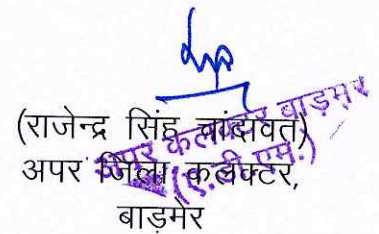 (राजेन्द्र सिंह चांदावत)
अपर जिला कलक्टर,
बाड़मेर
अपर कलक्टर बाड़मेर
(ए.डी.एम.)